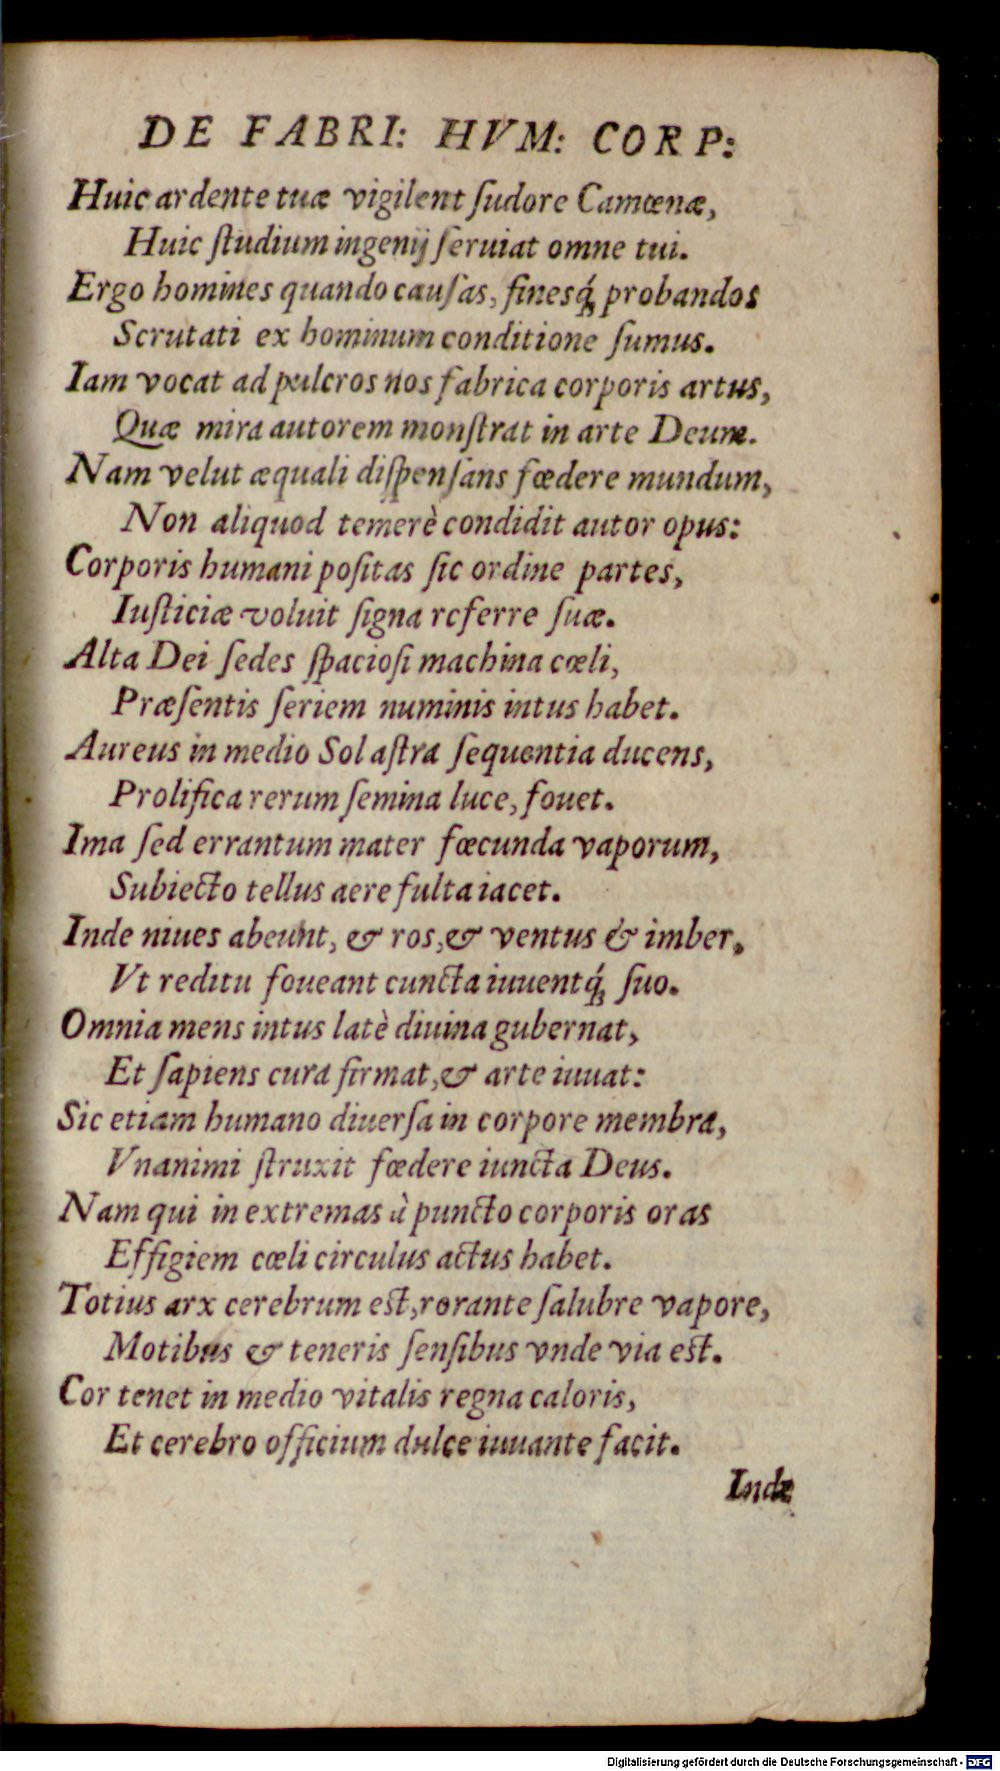 DE FABRI: HVM: CORP:
Huic ardente tuæ vigilent ſudore Camœnæ,
Huic ſtudium ingenij ſeruiat omne tui.
Ergo homines quando cauſas, finesq́; probandos
Scrutati ex hominum conditione ſumus.
Iam vocat ad pulcros nos fabrica corporis artus,
Quæ mira autorem monſtrat in arte Deum.
Nam velut æquali diſpenſans fœdere mundum,
Non aliquod temerè condidit autor opus:
Corporis humani poſitas ſic ordine partes,
Iuſticiæ voluit ſigna referre ſuæ.
Alta Dei ſedes ſpacioſi machina cœli,
Præſentis ſeriem numinis intus habet.
Aureus in medio Sol aſtra ſequentia ducens,
Prolifica rerum ſemina luce, fouet.
Ima ſed errantum mater fœcunda vaporum,
Subiecto tellus aere fulta iacet.
Inde niues abeunt, & ros, & ventus & imber,
Vt reditu foueant cuncta iuuentq́; ſuo.
Omnia mens intus latè diuina gubernat,
Et ſapiens cura firmat, & arte iuuat:
Sic etiam humano diuerſa in corpore membra,
Vnanimi ſtruxit fœdere iuncta Deus.
Nam qui in extremas à puncto corporis oras
Effigiem cœli circulus actus habet.
Totius arx cerebrum est, rorante ſalubre vapore,
Motibus & teneris ſenſibus vnde via est.
Cor tenet in medio vitalis regna caloris,
Et cerebro officium dulce iuuante facit.
Inde
Digitalisierung gefördert durch die Deutsche Forschungsgemeinschaft - DFG